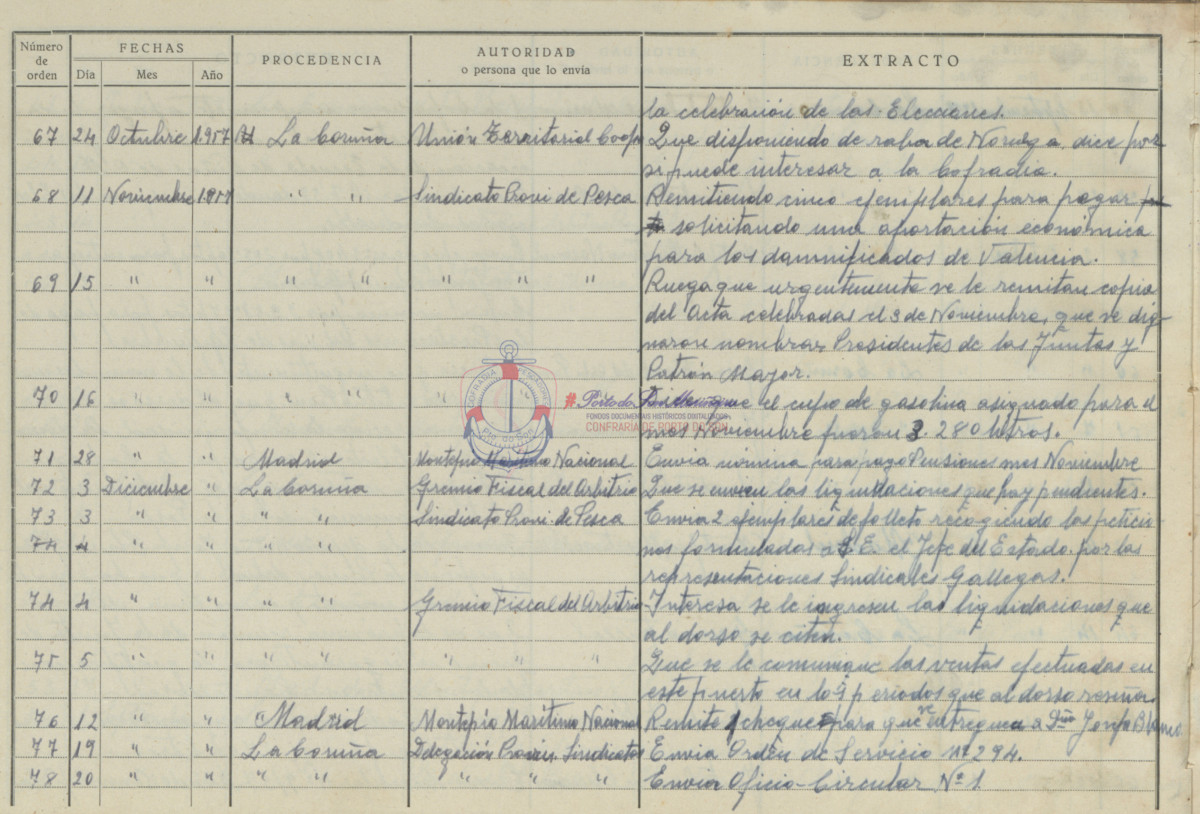 Número de orden FECHAS PROCEDENCIA AUTORIDAD o persona que lo envía EXTRACTO
Día Mes Año
la celebración de las Elecciones.
67 24 Octubre 1957 La Coruña Unión Territorial Coop. Que disponiendo de raba de Noruega dice por
si puede interesar a la Cofradia.
68 11 Noviembre 1957 " " Sindicato Provi de Pesca Remitiendo cinco ejemplares para pagar
solicitando una aportación económica
para los damnificados de Valencia.
69 15 " " " " " " " Ruega que urgentemente se le remitan copia
del Acta celebradas el 3 de Noviembre, que se dig-
naron nombrar Presidentes de las Juntas y
Patrón Mayor.
70 16 " " " " " que el cupo de gasolina asignado para el
mes Noviembre fueron 3.280 litros.
71 28 " " Madrid Montepio Maritimo Nacional Envia nómina para pago Pensiones mes Noviembre
72 3 Diciembre " La Coruña Gremio Fiscal del Arbitrio Que se envien las liquidaciones que hay pendientes.
73 3 " " " " Sindicato Provi. de Pesca Envia 2 ejemplares de folleto recogiendo las peticio-
74 4 " " " " nes formuladas a S.E. el Jefe del Estado. por las
representaciones Sindicales Gallegas.
74 4 " " " " Gremio Fiscal del Arbitrio Interesa se le ingresen las liquidaciones que
al dorso se citan.
75 5 " " " " " " " Que se le comunique las ventas efectuadas en
este puerto en los periodos que al dorso reseña.
76 12 " " Madrid Montepío Marítimo Nacional Remite 1 cheque para que se entreguen a Dña Josefa Blanco
77 19 " " La Coruña Delegación Provin. Sindicatos Envia Orden de Servicio nº 294.
78 20 " " " " " " " Envia Oficio-Circular Nº 1.
COFRADIA PESCADORES
Pto. do Son
#Porto do Son
FONDOS DOCUMENTAIS HISTÓRICOS DIXITALIZADOS
CONFRARÍA DE PORTO DO SON